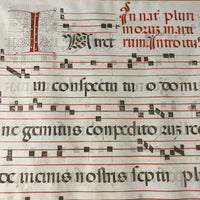 In nat. pluri
morum marti
rum. Introitus
I Ntret
in conspectu tu o domi
ne gemitus conpedito rum re
de vicinis nostris septu pl